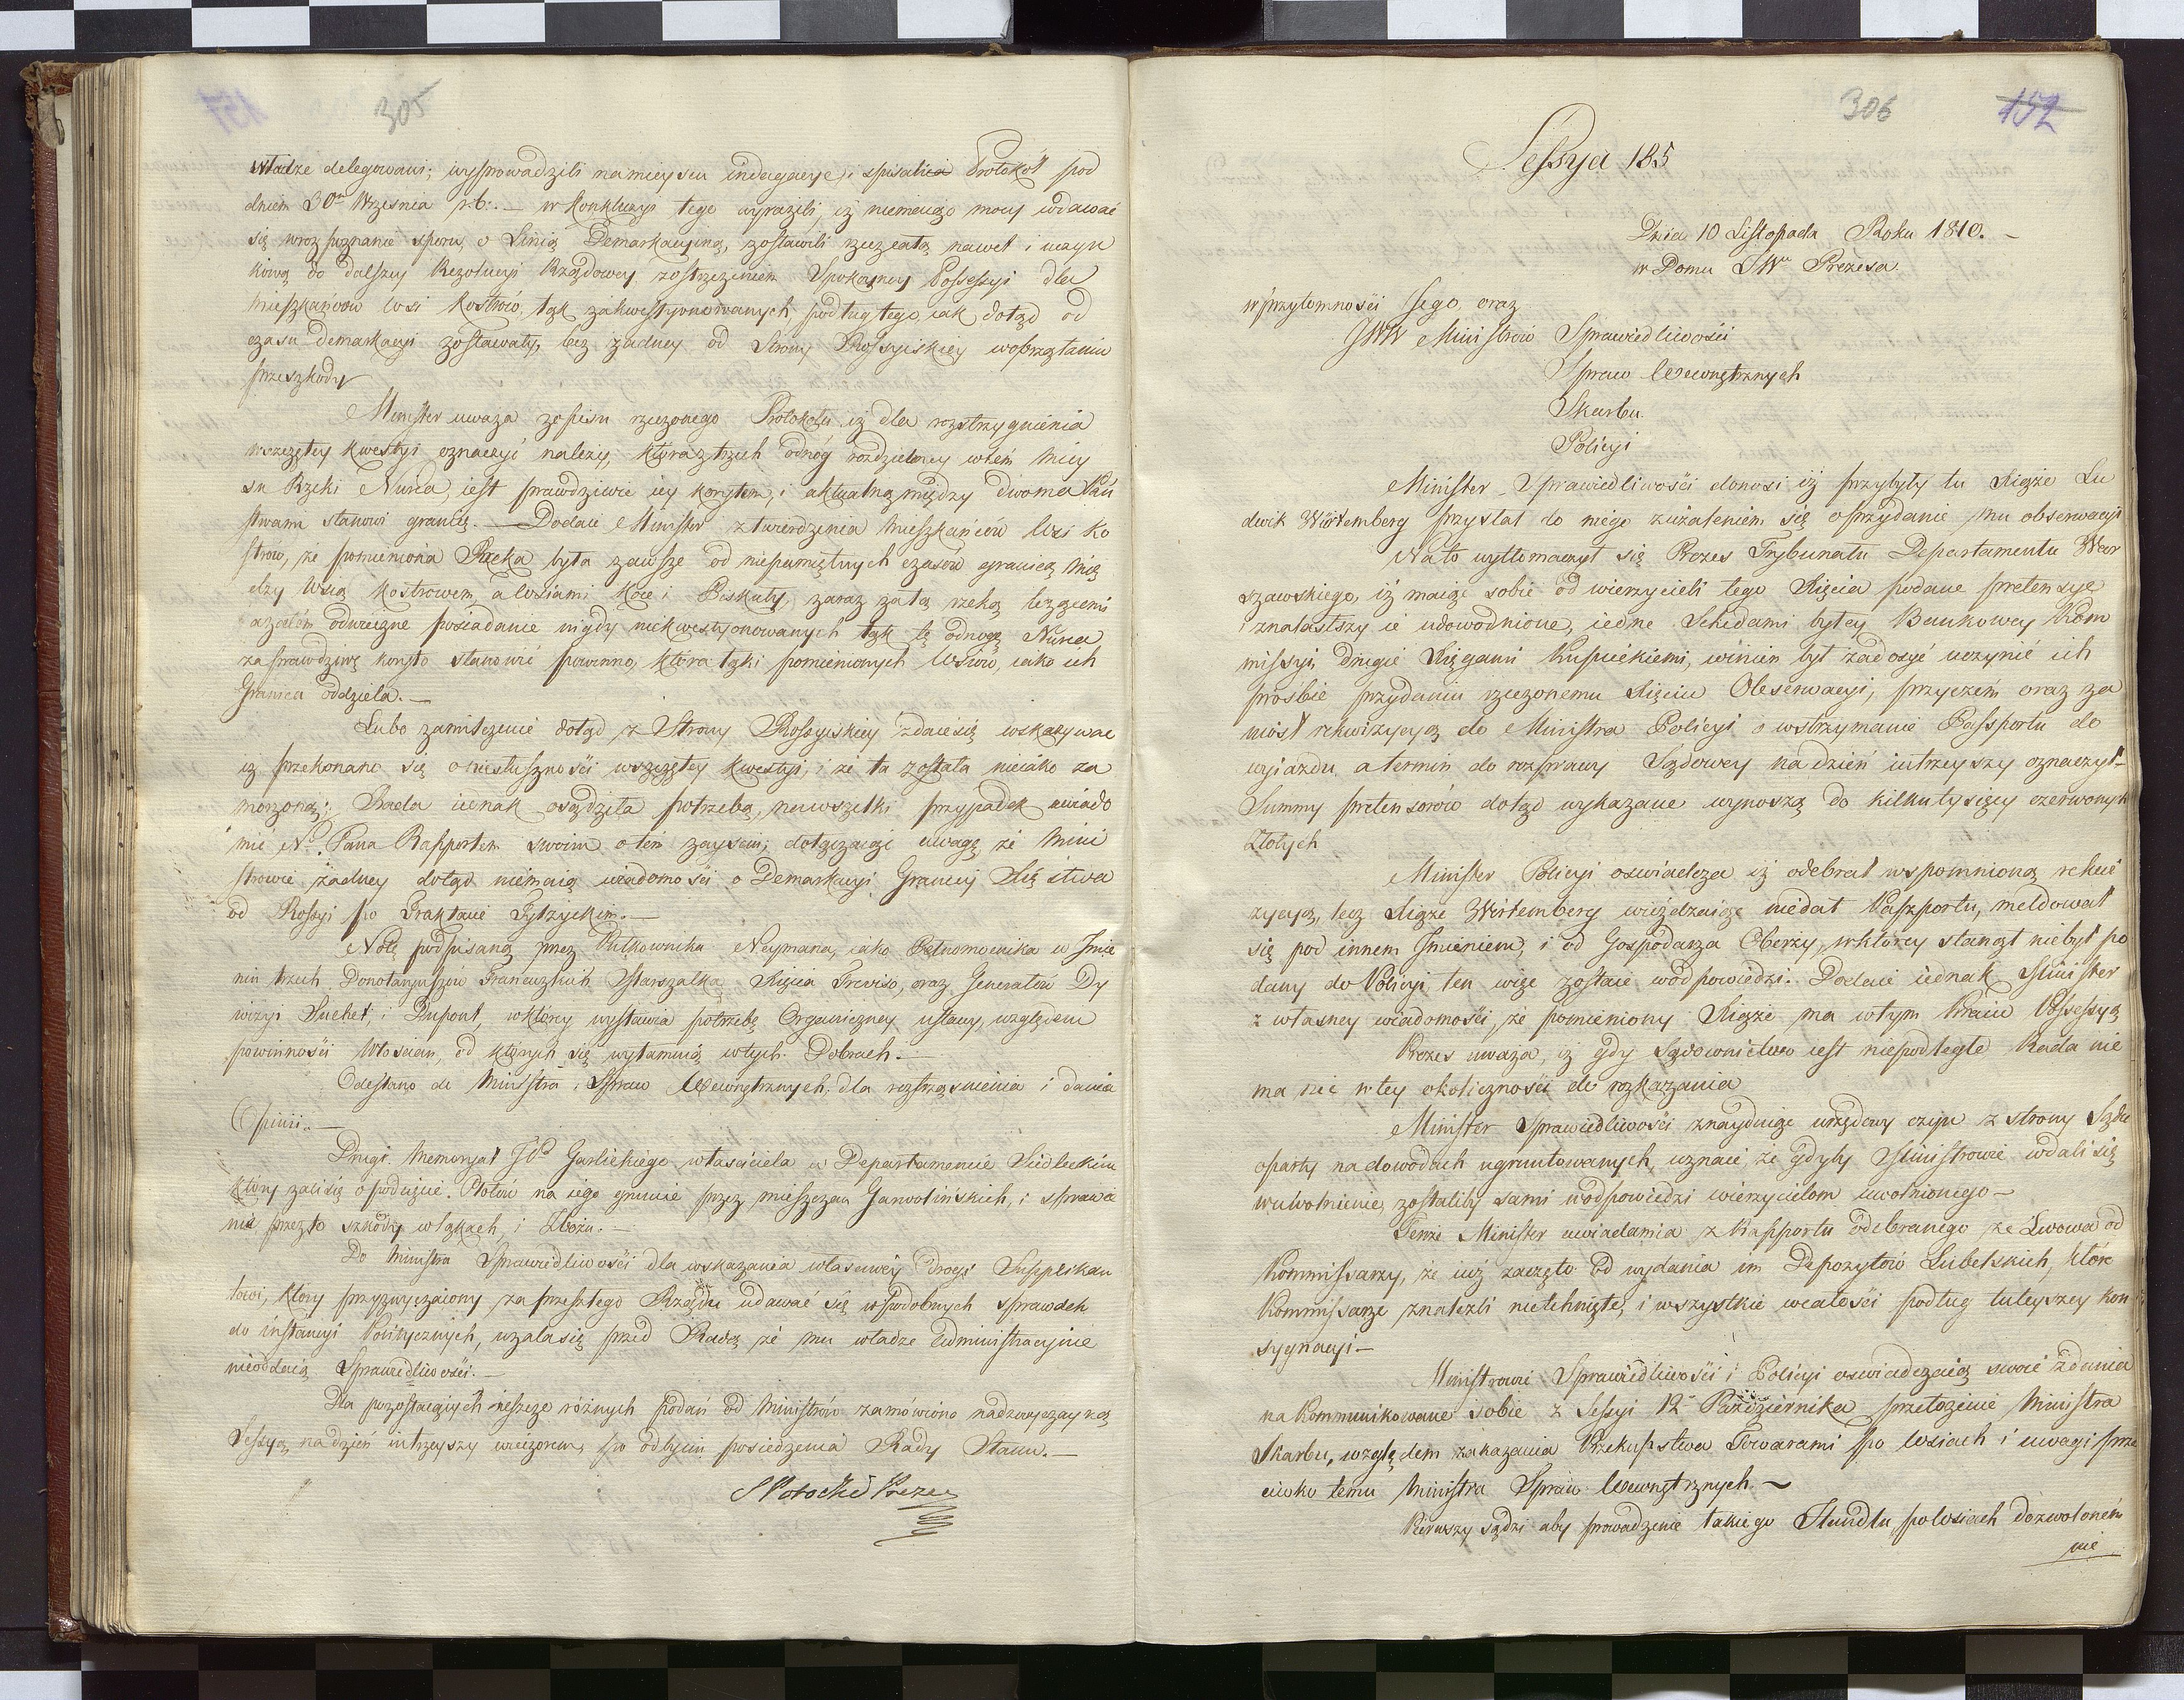 305
władze delegowani; wyprowadzili namieyscu indagacye, i spisali Protokół pod
dniem 30ᵐ Września r.b. — w Konkluzyi tego wyrazili, iż niemaiąc mocy wdawać
się wrozpoznanie sporu o Linią Demarkacyiną, zostawili rzeczoną nawet i
do dalszey Rezolucyi Rządowey, zostrzeżeniem Spokoyney Possessyi dla
Mieszkańców Wsi Kostrów, tąk zakwestyonowanych, podług tego iak dotąd od
czasu Demarkacyi zostawały, bez żadney od Strony Rossyiskiey wsprzątaniu
przeszkody
Minister uważa zopisu rzeczonego Protokołu iż dla rozstrzygnienia
wszczętey kwestyi oznaczyć należy, która ztrzech odnóg rozdzieloney wtém miey
scu Rzeki Nurca, iest prawdziwie iey korytem, i aktualną między dwoma Pań
stwami stanowi granicę. — Dodaie Minister z twierdzenia Mieszkańców Wsi Ko
strów, że pomieniona Rzeka była zawsze od niepamiętnych czasów granicą mię
dzy Wsią Kostrowem, a Wsiami Koce i Piskuty, zaraz zatą rzeką leżącemi
azatém odwieczne posiadanie nigdy niekwestyonowanych łąk tę odnogę Nurca
za prawdziwe koryto stanowić powinno, która łąki pomienionych Wsiów, iako ich
Granica oddziela. —
Lubo zamilczenie dotąd z Strony Rossyiskiey zdaie się wskazywać
iż przekonano się o niesłuszności wszczętey kwestyi, i że ta została nieiako za
morzoną; Rada iednak osądziła potrzebą, nawszelki przypadek uwiado
mić Nº Pana Rapportem swoim o tém zayściu; dołączaiąc uwagę, że Mini
strowie żadney dotąd niemaią wiadomości o Demarkacyi Granicy Xięstwa
od Rossyi po Traktacie Tylżyckim. —
Notę podpisaną przez Pułkownika Neymana, iako Pełnomocnika w Imie
niu trzech Donataryuszów Francuzkich Marszałka Xięcia Treviso, oraz Generałów Dy
wizyi Suchet, i Dupont, wktórey wystawia potrzebę Organiczney ustawy, względem
powinności Włościan, od których się wyłamuią wtych Dobrach. —
Odesłano do Ministra Spraw Wewnętrznych, dla roztrząśnienia i dania
Opinii. —
Drugi Memoryał JPᵃ Garlickiego właściciela w Departamencie Siedleckim
który żali się o podcięcie Płotów na iego gruncie przez mieszczan Garwolińskich, i sprawie
nie przezto szkody włąkach, i Zbożu. —
Do Ministra Sprawiedliwości dla wskazania właściwey drogi Supplikan
towi, który przyzwyczaiony za przeszłego Rządu udawać się wpodobnych sprawach
do instancyi Politycznych, użala się przed Radą, że mu władze Administracyine
nieoddaią Sprawiedliwości. —
Dla pozostaiących ieszcze różnych podań od Ministrów zamówiono nadzwyczayną
Sessyą, na dzień iutrzeyszy wieczorem, po odbyciu posiedzenia Rady Stanu. —
S Potocki Prezes
306 152
Sessya 185
Dnia 10 Listopada Roku 1810. —
w Domu JWº Prezesa
w przytomności Jego, oraz
JWW Ministrów Sprawiedliwości
Spraw Wewnętrznych
Skarbu
Policyi
Minister Sprawiedliwości donosi iż przybyły tu Xiąże Lu
dwik Würtemberg przysłał do niego zużaleniem się oprzydanie mu obserwacyi
Na to wytłomaczył się Prezes Trybunału Departamentu War
szawskiego, iż maiąc sobie od wierzycieli tego Xięcia podane pretensye
i znalazłszy ie udowodnione, iedne Schedami byłey Bankowey Kom
missyi, drugie Xięgami Kupieckiemi, winien był zadosyć uczynić ich
prośbie przydaniu rzeczonemu Xięciu Obserwacyi, przyczém oraz za
niósł rekwizycyą do Ministra Policyi o wstrzymanie Passportu do
wyiazdu, a termin do rozprawy Sądowey na dzień iutrzeyszy oznaczył —
Summy pretensorów dotąd wykazane wynoszą do kilkutysięcy czerwonych
Złotych
Minister Policyi oświadcza iż odebrał wspomnioną rekwi
zycyą, lecz Xiąże Würtemberg wieżdżaiąc niedał Paszportu, meldował
się pod innem Imieniem, i od Gospodarza Oberży, wktórey stanął niebył po
dany do Policyi, ten więc zostaie wodpowiedzi. Dodaie iednak Minister
z własney wiadomości, że pomieniony Xiąże ma wtym Kraiu Possessyą
Prezes uważa, iż gdy Sądownictwo iest niepodległe Rada nie
ma nic w tey okoliczności do rozkazania
Minister Sprawiedliwości znayduiąc urzędowy czyn z strony Sądu
oparty na dowodach ugruntowanych, uznaie, że gdyby Ministrowie wdali się
w uwolnienie, zostaliby sami wodpowiedzi wierzycielom uwolnionego —
Tenże Minister uwiadamia z Rapportu odebranego ze Lwowa od
Kommissarzy, że iuż zaczęto od wydania im Depozytów Lubelskich, które
Kommissarze znaleźli nietchnięte, i wszystkie wcałości podług tuteyszey kon
sygnacyi —
Ministrowie Sprawiedliwości i Policyi oświadczaią swoie zdania
na Kommunikowane sobie z Sessyi 12 Października przełożenie Ministra
Skarbu, względem zakazania Przekupstwa Towarami po Wsiach i uwagi prze
ciwko temu Ministra Spraw Wewnętrznych ~
Pierwszy sądzi aby prowadzenie takiego Handlu po Wsiach dozwoloném
nie